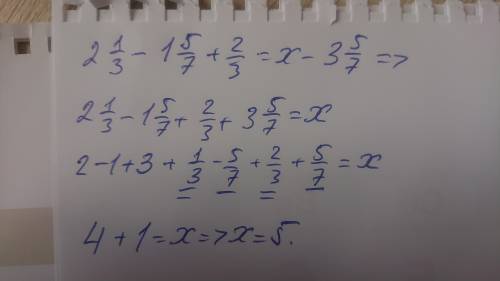 2 1/3 - 1 5/7 + 2/3 = x - 3 5/7 =>
2 1/3 - 1 5/7 + 2/3 + 3 5/7 = x
2 - 1 + 3 + 1/3 - 5/7 + 2/3 + 5/7 = x
4 + 1 = x => x = 5.